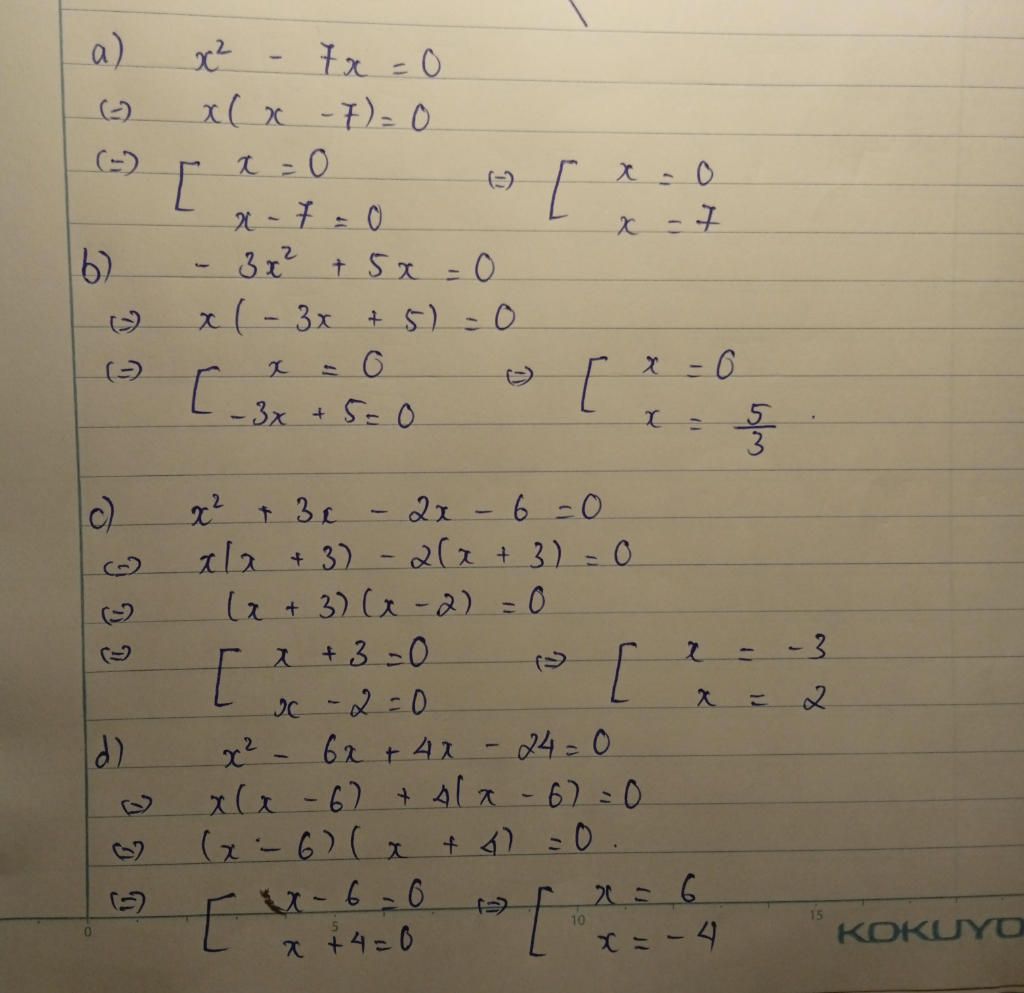 a) x² - 7x = 0
(=) x( x - 7) = 0
(=) [ x = 0 (=) [ x = 0
x - 7 = 0 x = 7
b) - 3x² + 5x = 0
(=) x( - 3x + 5) = 0
(=) [ x = 0 (=) [ x = 0
-3x + 5 = 0 x = 5/3 .
c) x² + 3x - 2x - 6 = 0
(=) x(x + 3) - 2(x + 3) = 0
(=) (x + 3)(x - 2) = 0
(=) [ x + 3 = 0 (=) [ x = -3
x - 2 = 0 x = 2
d) x² - 6x + 4x - 24 = 0
(=) x(x - 6) + 4(x - 6) = 0
(=) (x - 6)( x + 4) = 0 .
(=) [ x - 6 = 0 (=) [ x = 6
x + 4 = 0 x = -4
0 5 10 15 KOKUYO